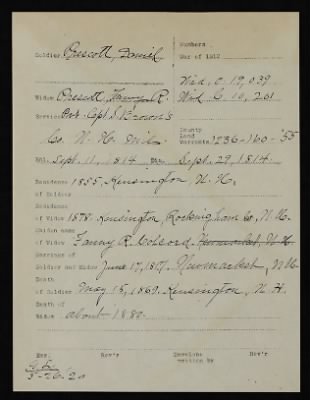 Numbers
Soldier Prescott, Daniel
War of 1812
Wid. O. 19,039
Widow Prescott, Fanny R. Wid. C. 10,261
Service Pvt. Capt. S. Brown's
Co. N. H. Mil.
Bounty Land Warrants 1236-160-'55
Enl. Sept. 11, 1814 Sept. 29, 1814.
Residence of Soldier 1855, Kensington, N. H.
Residence of Widow 1878. Kensington, Rockingham Co., N. H.
Maiden name of Widow Fanny R. Colcord. Newmarket, N. H.
Marriage of Soldier and Widow June 17, 1817. Newmarket, N. H.
Death of Soldier May 15, 1869. Kensington, N. H.
Death of Widow about 1882.
Mss. Rec'r Envelope written by Rev'r